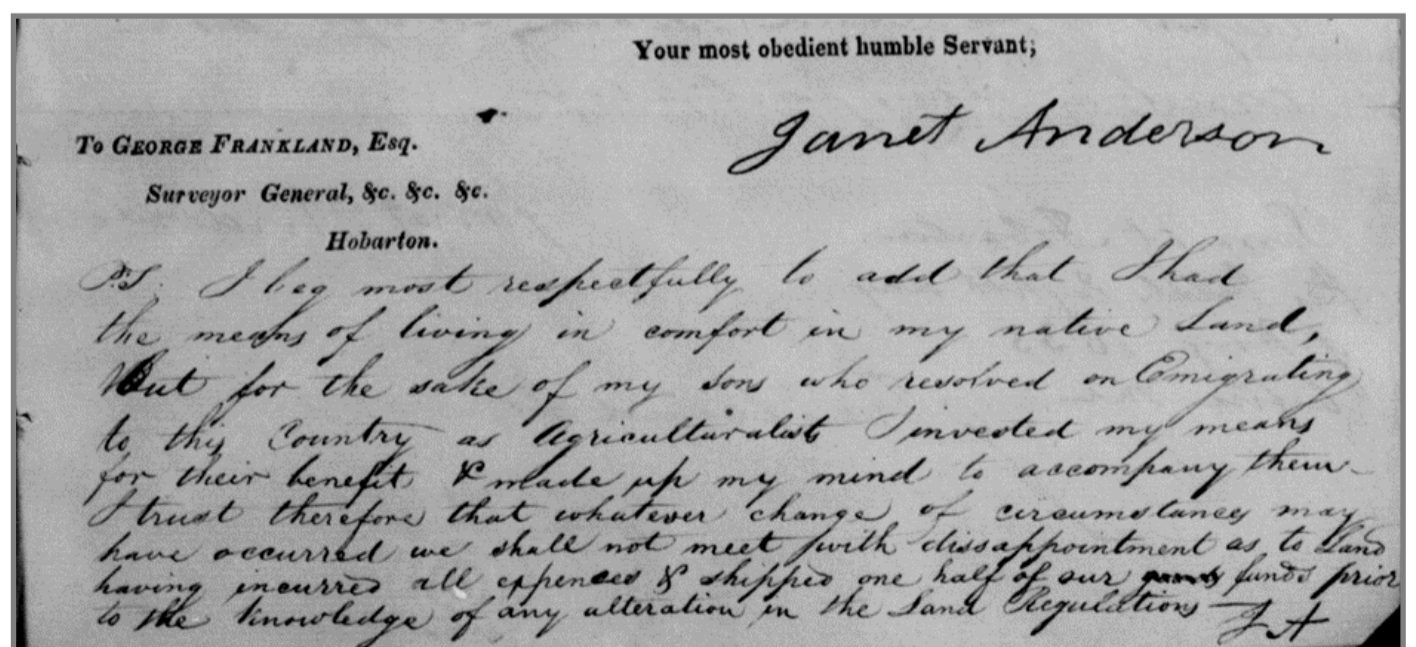 Your most obedient humble Servant;
Janet Anderson
To GEORGE FRANKLAND, Esq.
Surveyor General, &c. &c. &c.
Hobarton.
P.S. I beg most respectfully to add that I had
the means of living in comfort in my native Land,
But for the sake of my sons who resolved on Emigrating
to this Country as Agriculturalist I invested my means
for their benefit & made up my mind to accompany them
I trust therefore that whatever change of circumstances may
have occurred we shall not meet with dissappointment as to Land
having incurred all expences & shipped one half of our funds prior
to the knowledge of any alteration in the Land Regulations
J A